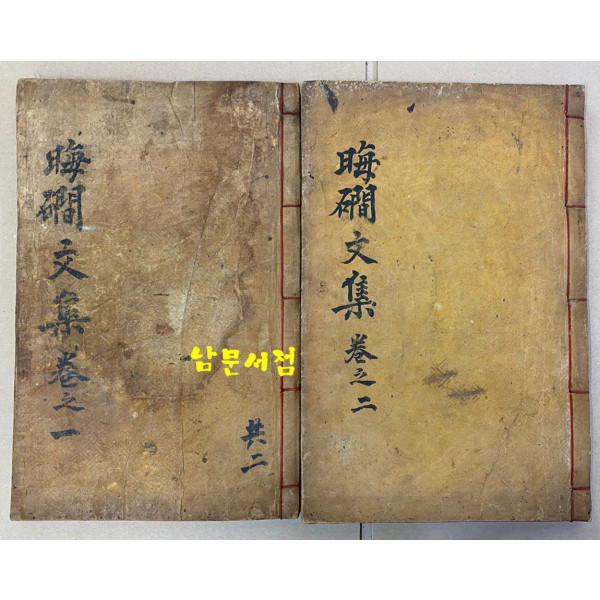 晦磵文集卷之一
共二
남문서점
晦磵文集 卷之二